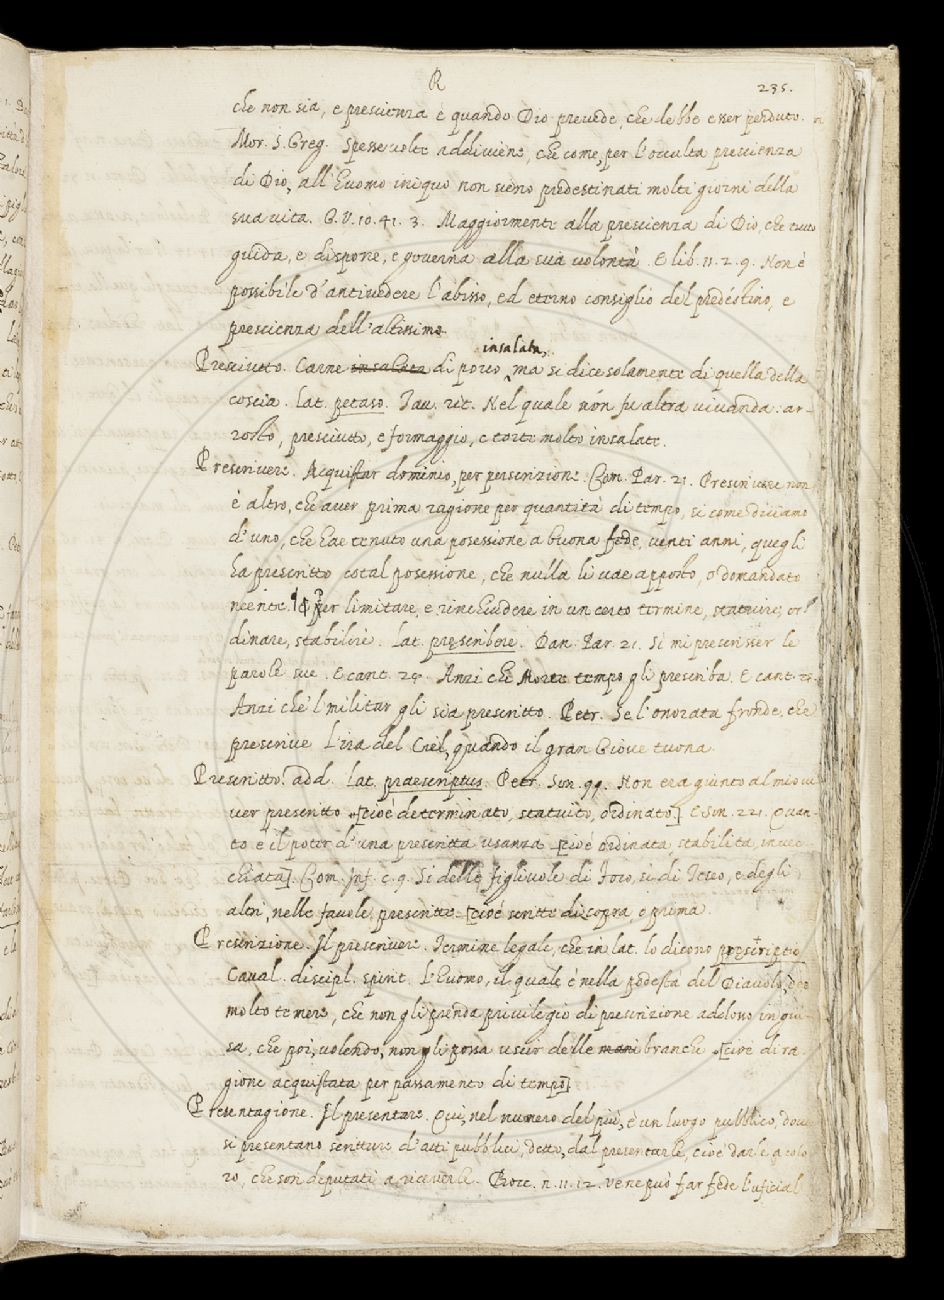 R
235.
che non sia, e prescienza è quando Dio prevede, che debbe esser perduto.
Mor. S. Greg. Spesse volte addiviene, che come, per l'occulta prescienza
di Dio, all'huomo iniquo non sieno predestinati molti giorni della
sua vita. G. V. 10. 41. 3. Maggiormente alla prescienza di Dio, che tutto
guida, e dispone, e governa alla sua volontà. E lib. 11. 2. 9. Non è
possibile d'antivedere l'abisso, ed eterno consiglio del predestino, e
prescienza dell'altissimo.
insalata,
Presciutto. Carne insalata di porco ma si dice solamente di quella della
coscia. Lat. petaso. Tav. rit. Nel quale non fu altra vivanda: ar-
rosto, presciutto, e formaggio, e torte molto insalate.
Prescrivere. Acquistar dominio, per perscrizione. Com. Par. 21. Prescrivere non
è altro, che aver prima ragione per quantità di tempo, si come diciamo
d'uno, che hae tenuto una posessione a buona fede, venti anni, quegli
ha prescritto cotal posessione, che nulla li vae apporto, o domandato
neente. ¶ Per limitare, e rinchiudere in un certo termine, statuire, or-
dinare, stabilire. Lat. prescribere. Dan. Par. 21. Sì mi prescrisser le
parole sue. E cant. 24. Anzi che Morte tempo gli prescriba. E cant. 25.
Anzi che 'l militar gli sia prescritto. Petr. Se l'onorata fronde, che
prescrive L'ira del Ciel, quando il gran Giove tuona.
Prescritto. add. Lat. praescriptus. Petr. Son. 99. Non era giunto al mio vi-
ver prescritto [cioè determinato, statuito, ordinato] E Son. 221. Quan-
to è il poter d'una prescritta usanza [cioè ordinata, stabilita, invec-
chiata]. Com. Inf. c. 9. Si delle figliuole di Foro, sì di Teseo, e degli
altri, nelle favole prescritte [cioè scritte di sopra, e prima.
Prescrizione. Il prescrivere. Termine legale, che in lat. lo dicono prescriptio
Caval. discipl. spirit. L'huomo, il quale è nella podestà del Diavolo, dee
molto temere, che non gli prenda privilegio di prescrizione addosso in gui-
sa, che poi, volendo, non gli possa uscir delle mani branche [cioè di ra-
gione acquistata per passamento di tempo]
Presentagione. Il presentare. Qui, nel numero del più, è un luogo pubblico, dove
si presentano scritture d'atti pubblici, detto, dal presentarle, cioè darle a colo-
ro, che son deputati a riceverle. Bocc. n. 11. 12. Ve ne può far fede l'uficial